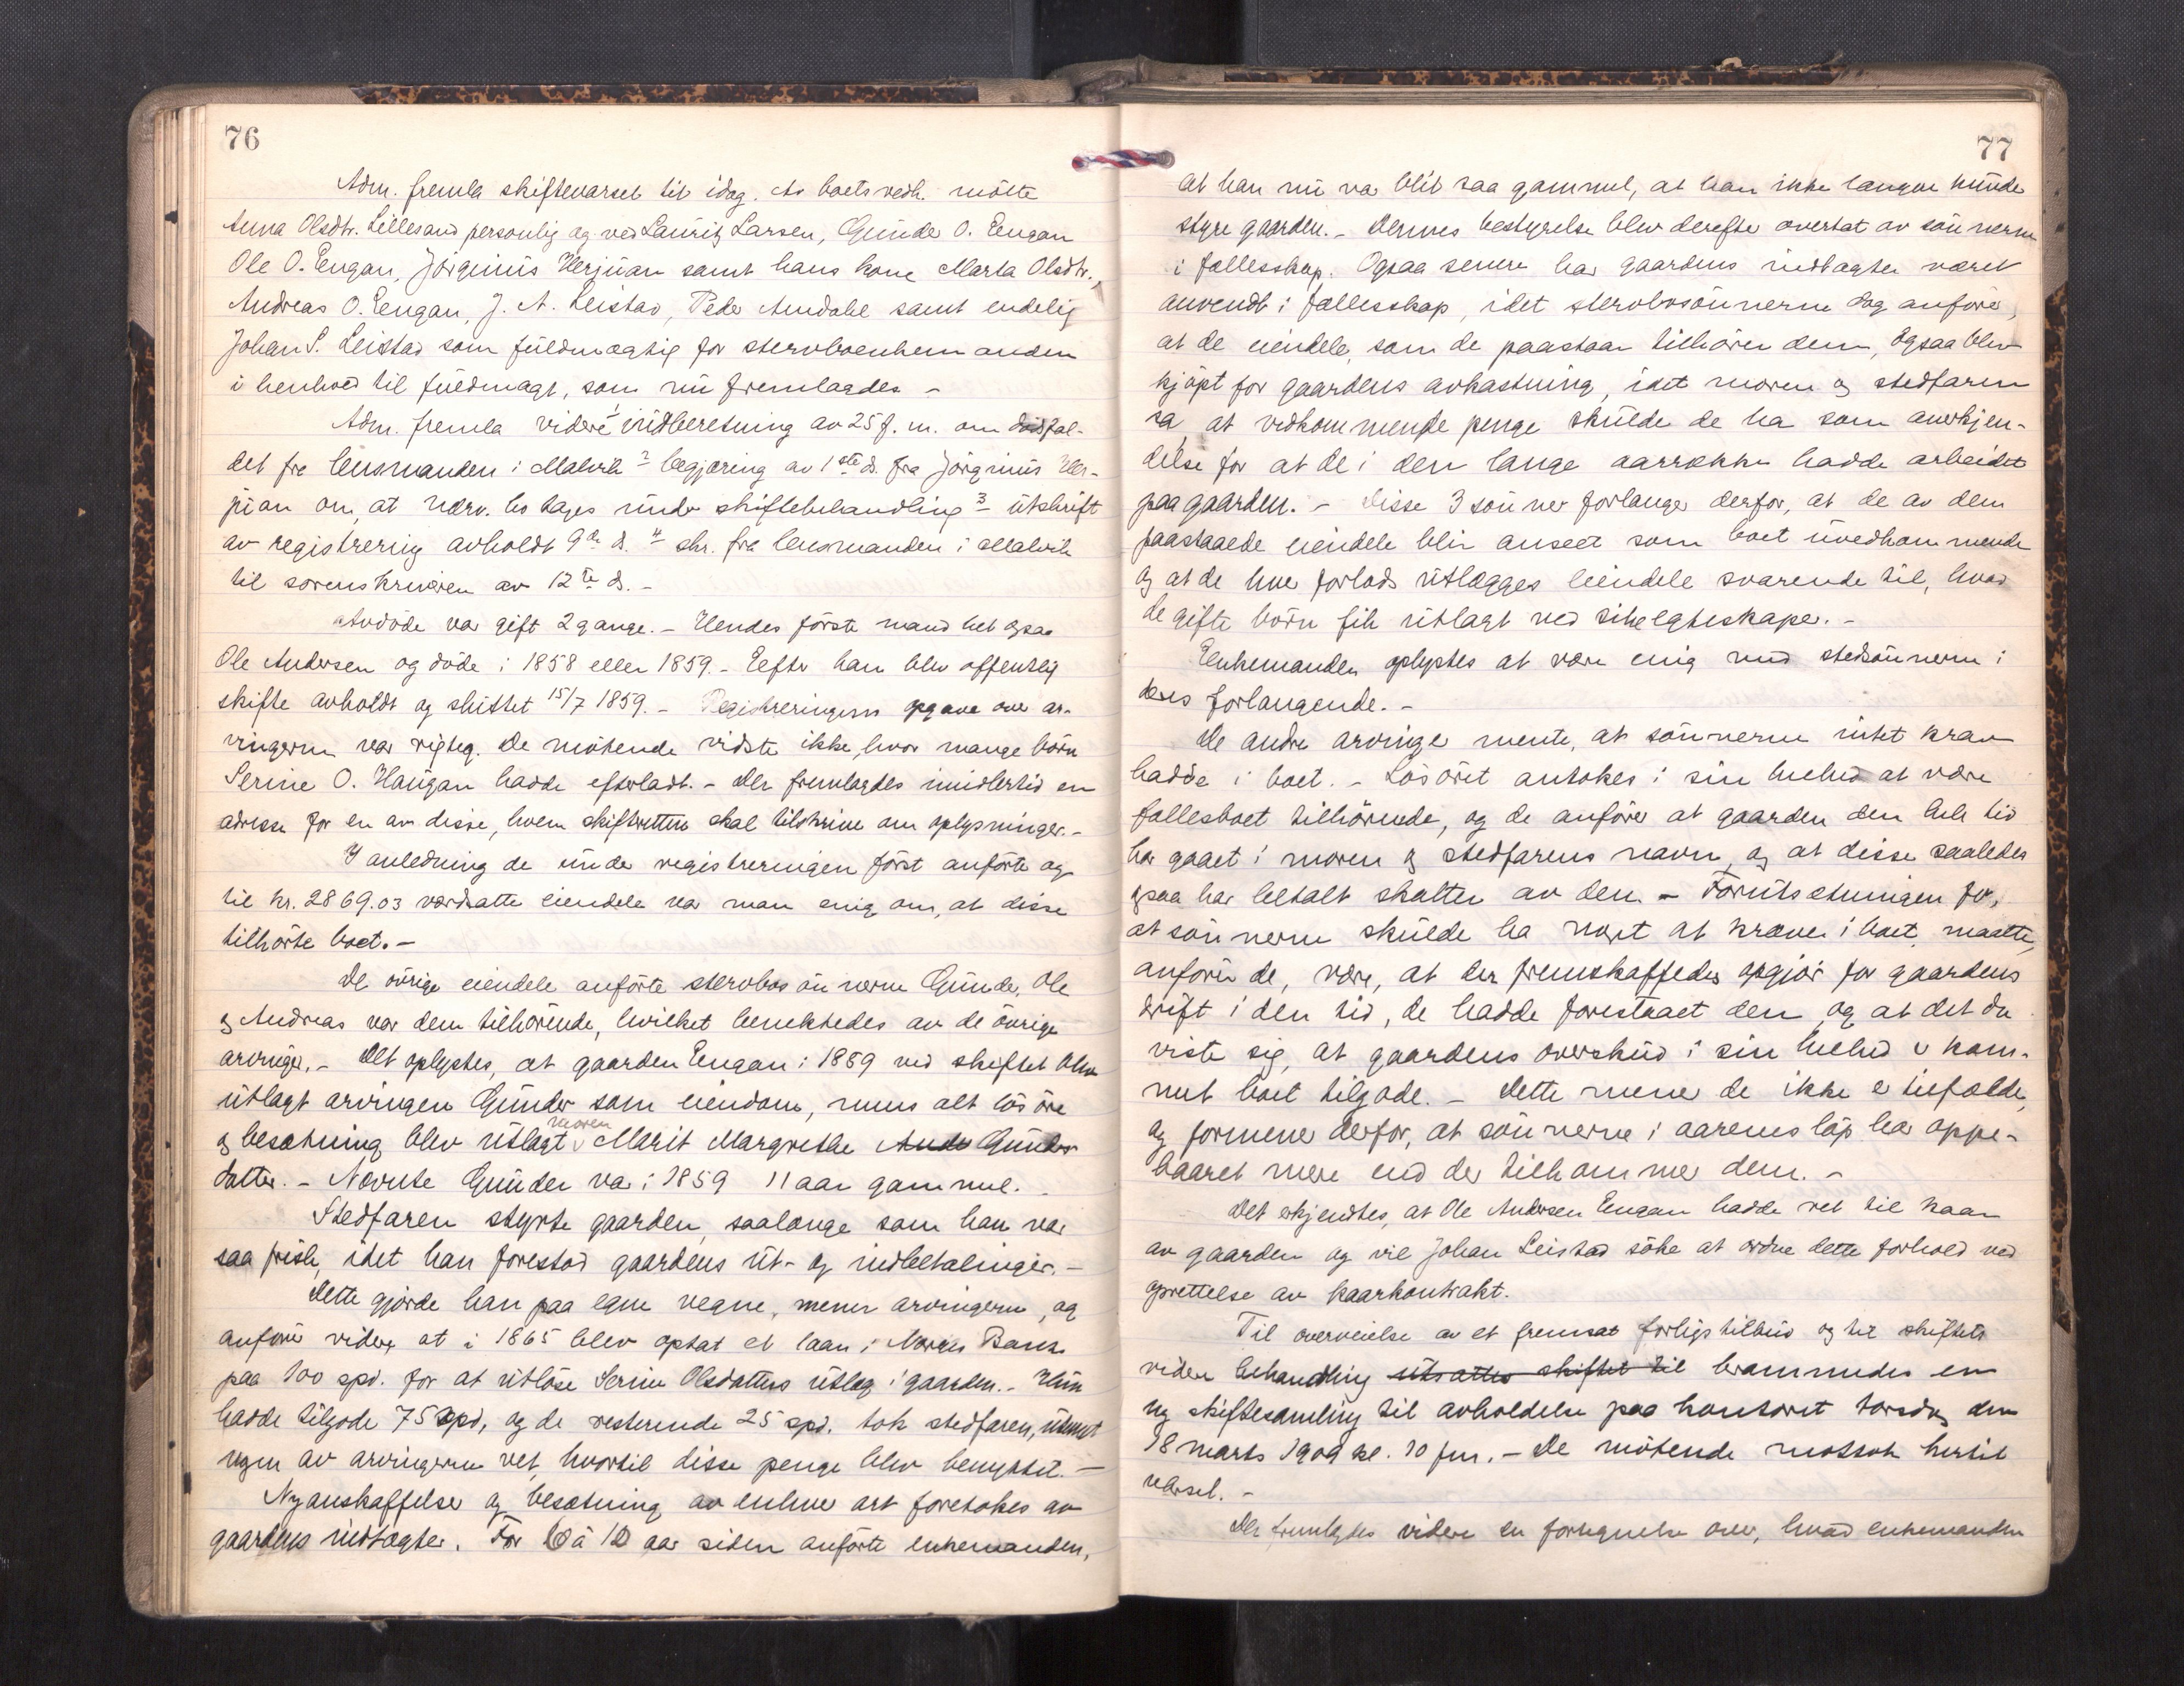 76
Adm. fremla skiftevarsel til idag. As boets vedk. mötte
Anna Olsdtr. Lillesand personlig og ved Lauritz Larsen, Gunder O. Engan
Ole O. Engan, Jörginus Herjuan samt hans kone Marta Olsdtr.,
Andreas O. Engan, J. A. Leistad, Peder Amdahl samt endelig
Johan S. Leistad som fuldmægtig for stervboenkemanden
i henhold til fuldmagt, som nu fremlagdes –
Adm. fremla videre 1 indberetning av 25 f. m. om dödsfal-
det fra lensmanden i Malvik 2 begjæring av 1ste ds. fra Jörginus Her-
juan om, at nærv. bo tages under skiftebehandling 3 utskrift
av registrering avholdt 9de ds. 4 skr. fra lensmanden i Malvik
til sorenskriveren av 12te ds. –
Avdöde var gift 2 gange. – Hendes förste mand het ogsaa
Ole Andersen og döde i 1858 eller 1859. – Eefter han blev offentlig
skifte avholdt og sluttet 15/7 1859. – Registreringens opgave over ar-
vingerne var rigtig. De mötende vidste ikke, hvor mange börn
Serine O. Haugan hadde efterladt. – Der fremlagdes imidlertid en
adresse for en av disse, hvem skifteretten skal tilskrive om oplysninger. –
I anledning de under registreringen först anförte og
til kr. 2869.03 værdsatte eiendele var man enig om, at disse
tilhörte boet. –
De övrige eiendele anförte stervbosönnerne Gunder, Ole
og Andreas var dem tilhörende, hvilket benektedes av de övrige
arvinger. – Det oplystes, at gaarden Engan i 1859 ved skiftet blev
utlagt arvingen Gunder som eiendom, mens alt lösöre
og besætning blev utlagt moren Marit Margrethe Ande Gunders-
datter. – Nævnte Gunder var i 1859 11 aar gammel. –
Stedfaren styrte gaarden, saalænge som han var
saa frisk, idet han forestod gaardens ut- og indbetalinger. –
Dette gjorde han paa egne vegne, mener arvingerne, og
anförer videre at i 1865 blev optat et laan i Norges Bank
paa 100 spd. for at utlöse Serine Olsdatters utlæg i gaarden. – Hun
hadde tilgode 75 spd, og de resterende 25 spd. tok stedfaren, uten at
nogen av arvingerne vet, hvortil disse penge blev benyttet. –
Nyanskaffelser og besætning av enhver art foretokes av
gaardens indtægter. For 10 à 12 aar siden anförte enkemanden,
77
at han nu var blit saa gammel, at han ikke længer kunde
styre gaarden. – Dennes bestyrelse blev derefter overtat av sönnerne
i fællesskap. Ogsaa senere har gaardens indtægter været
anvendt i fællesskap, idet stervbosönnerne dog anförer,
at de eiendele, som de paastaar tilhörer dem, ogsaa blev
kjöpt for gaardens avkastning, idet moren og stedfaren
sa, at vedkommende penge skulde de ha som anerkjen-
delse for at de i den lange aarrække hadde arbeidet
paa gaarden. – Disse 3 sönner forlanger derfor, at de av dem
paastaaede eiendele blir anseet som boet uvedkommende
og at de hver forlods utlægges eiendele svarende til, hvad
de gifte börn fik utlagt ved sine egteskaper. –
Enkemanden oplystes at være enig med stedsönnerne i
deres forlangende. –
De andre arvinger mente, at sönnerne intet krav
hadde i boet. – Lösöret antokes i sin helhed at være
fællesboet tilhörende, og de anförer at gaarden den hele tid
har gaaet i moren og stedfarens navn, og at disse saaledes
ogsaa har betalt skatter av den. – Forutsetningen for,
at sönnerne skulde ha noget at kræve i boet, maatte,
anförer de, være, at der fremskaffedes opgjör for gaardens
drift i den tid, de hadde forestaaet den, og at det da
viste sig, at gaardens overskud i sin helhed er kom-
met boet tilgode. – Dette mener de ikke er tilfælde,
og formener derfor, at sönnerne i aarenes löp har oppe-
baaret mere end der tilkommer dem. –
Det erkjendtes, at Ole Andersen Engan hadde ret til kaar
av gaarden og vil Johan Leistad söke at ordne dette forhold ved
oprettelse av kaarkontrakt.
Til overveielse av et fremsat forligstilbud og til skiftets
videre behandling utsattes skiftet til berammedes en
ny skiftesamling til avholdelse paa kontoret torsdag den
18 marts 1909 kl. 10 fm. – De mötende mottok hertil
varsel. –
Der fremlagdes videre en fortegnelse over, hvad enkemanden